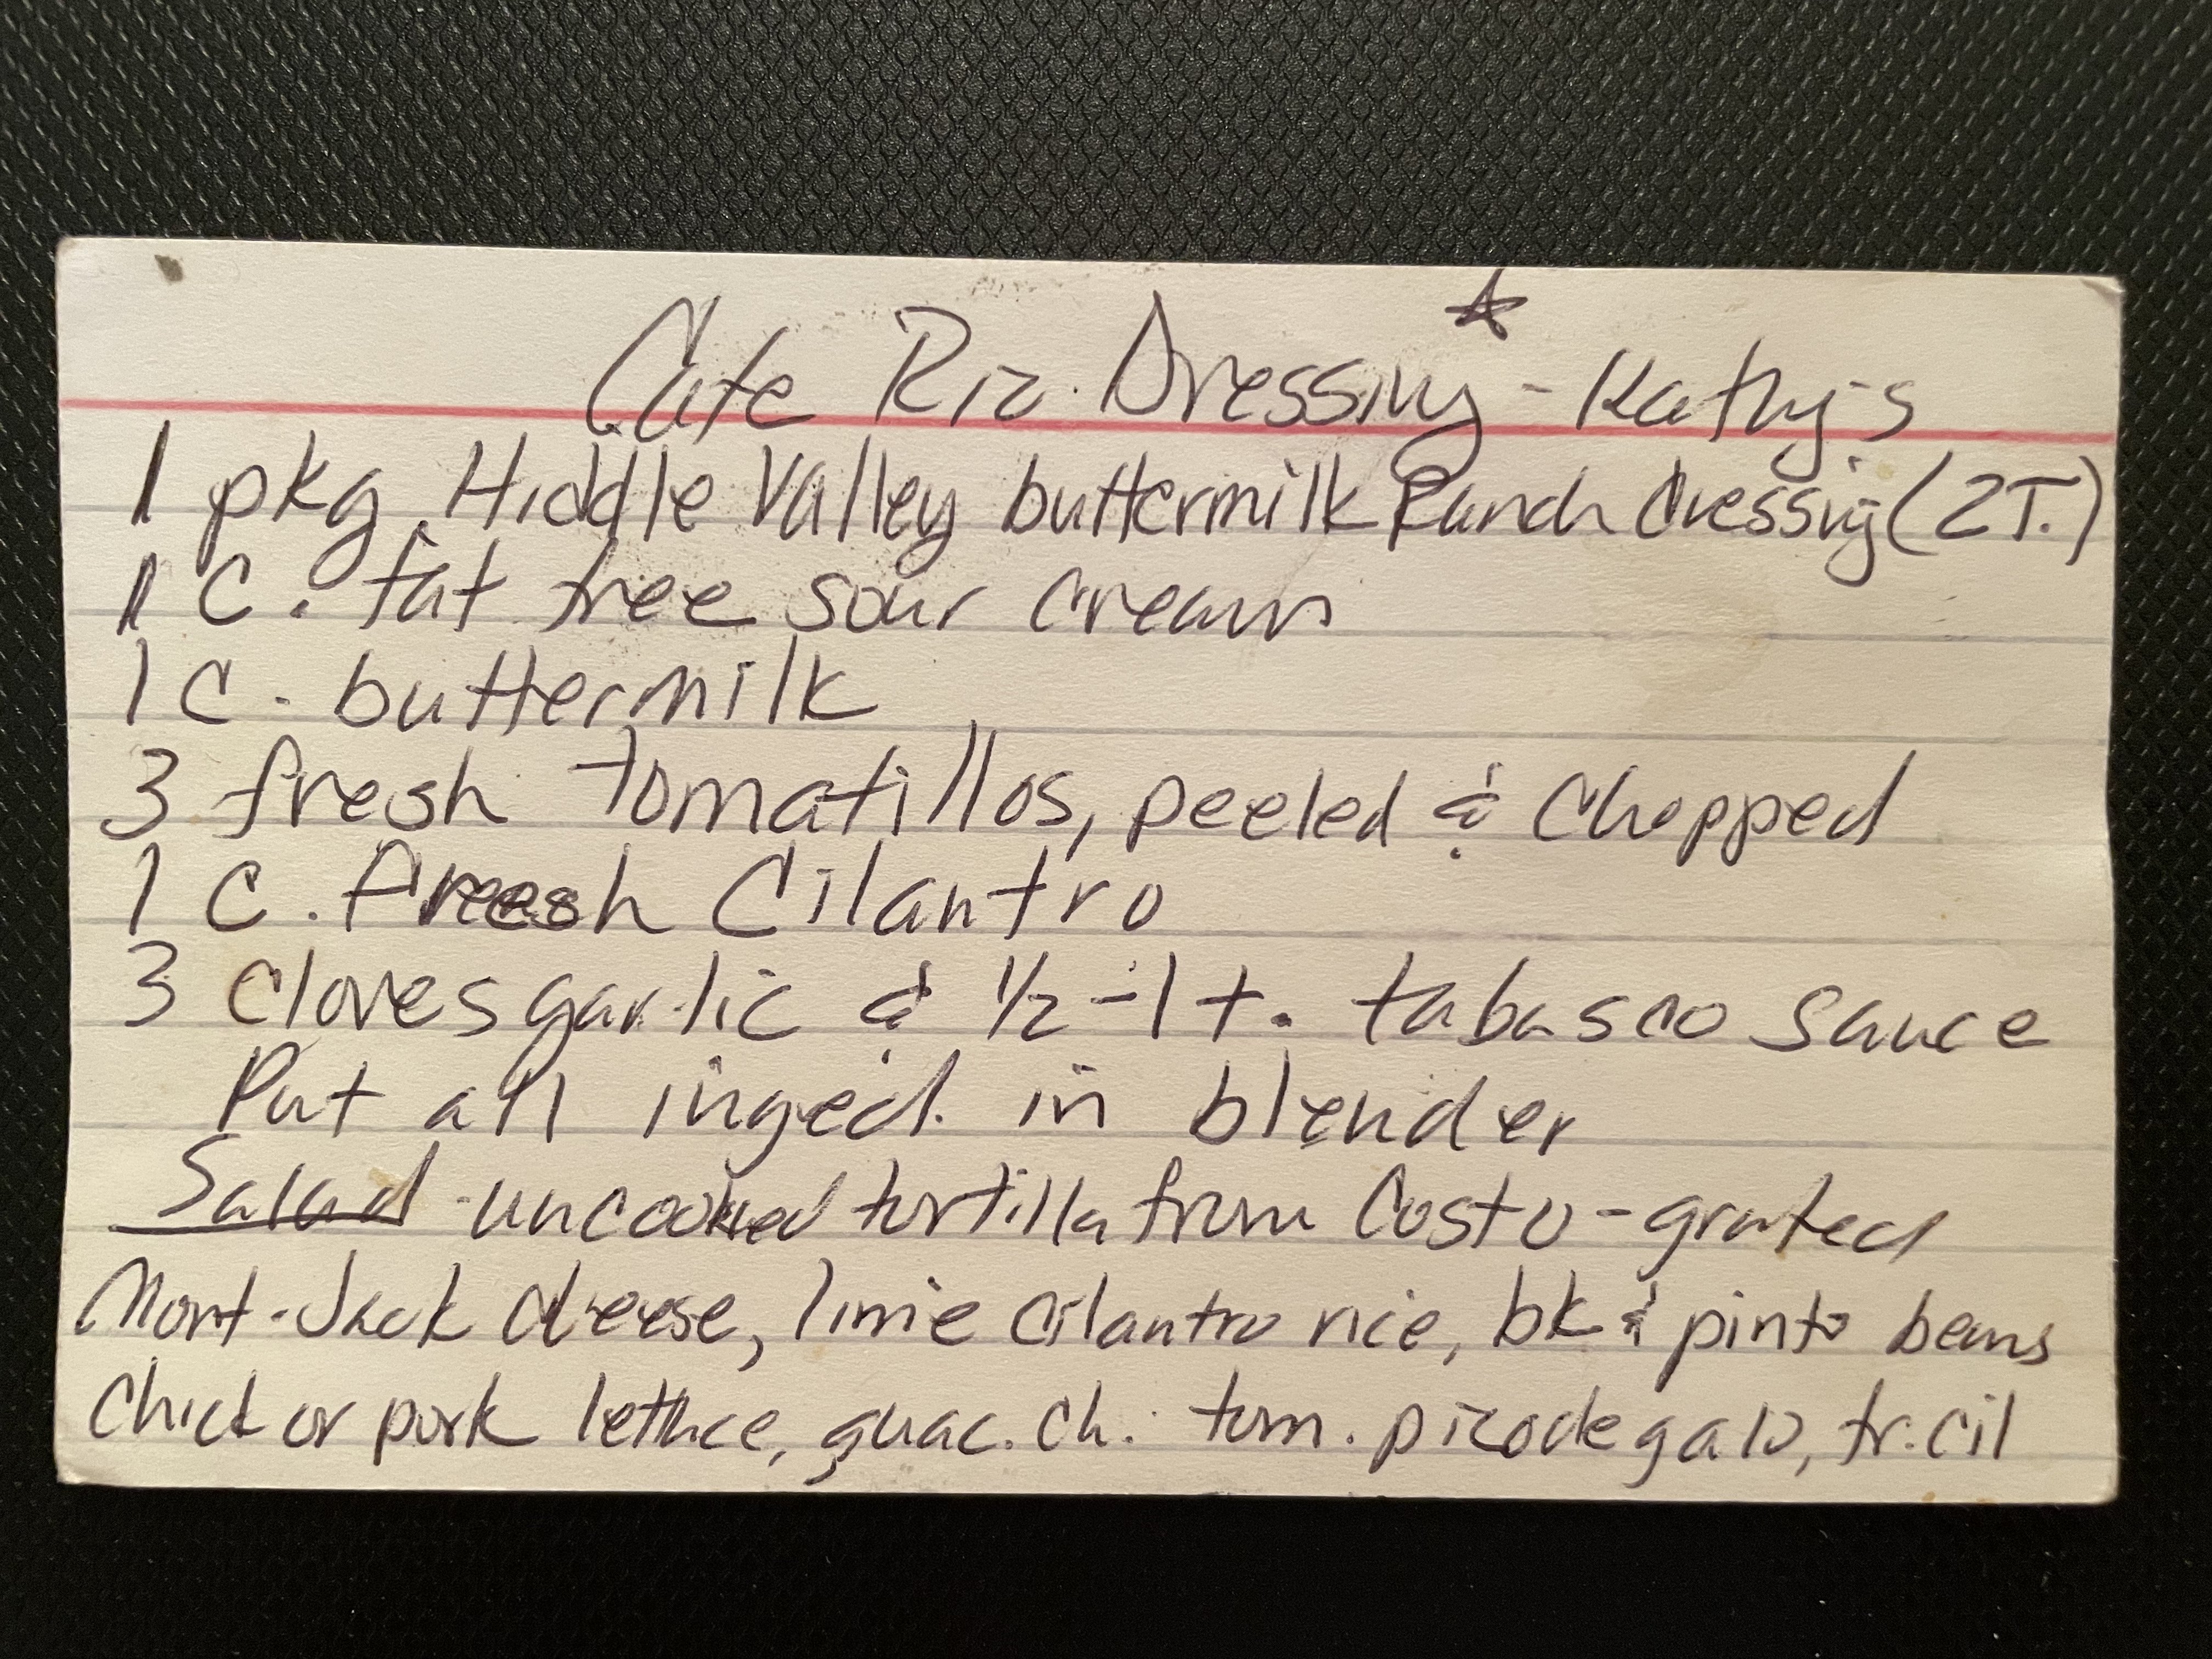 Cafe Rio Dressing - Kathy's
1 pkg. Hiddle Valley buttermilk Ranch dressing (2T.)
1 C. fat free sour cream
1 C. buttermilk
3 fresh tomatillos, peeled & chopped
1 C. fresh Cilantro
3 cloves garlic & 1/2 - 1 t. tabasco sauce
Put all inged. in blender
Salad - uncooked tortilla from Costco - grated
Mont. Jack cheese, lime cilantro rice, bk & pinto beans
Chick or pork lettuce, guac. ch. tom. pico de galo, fr. cil